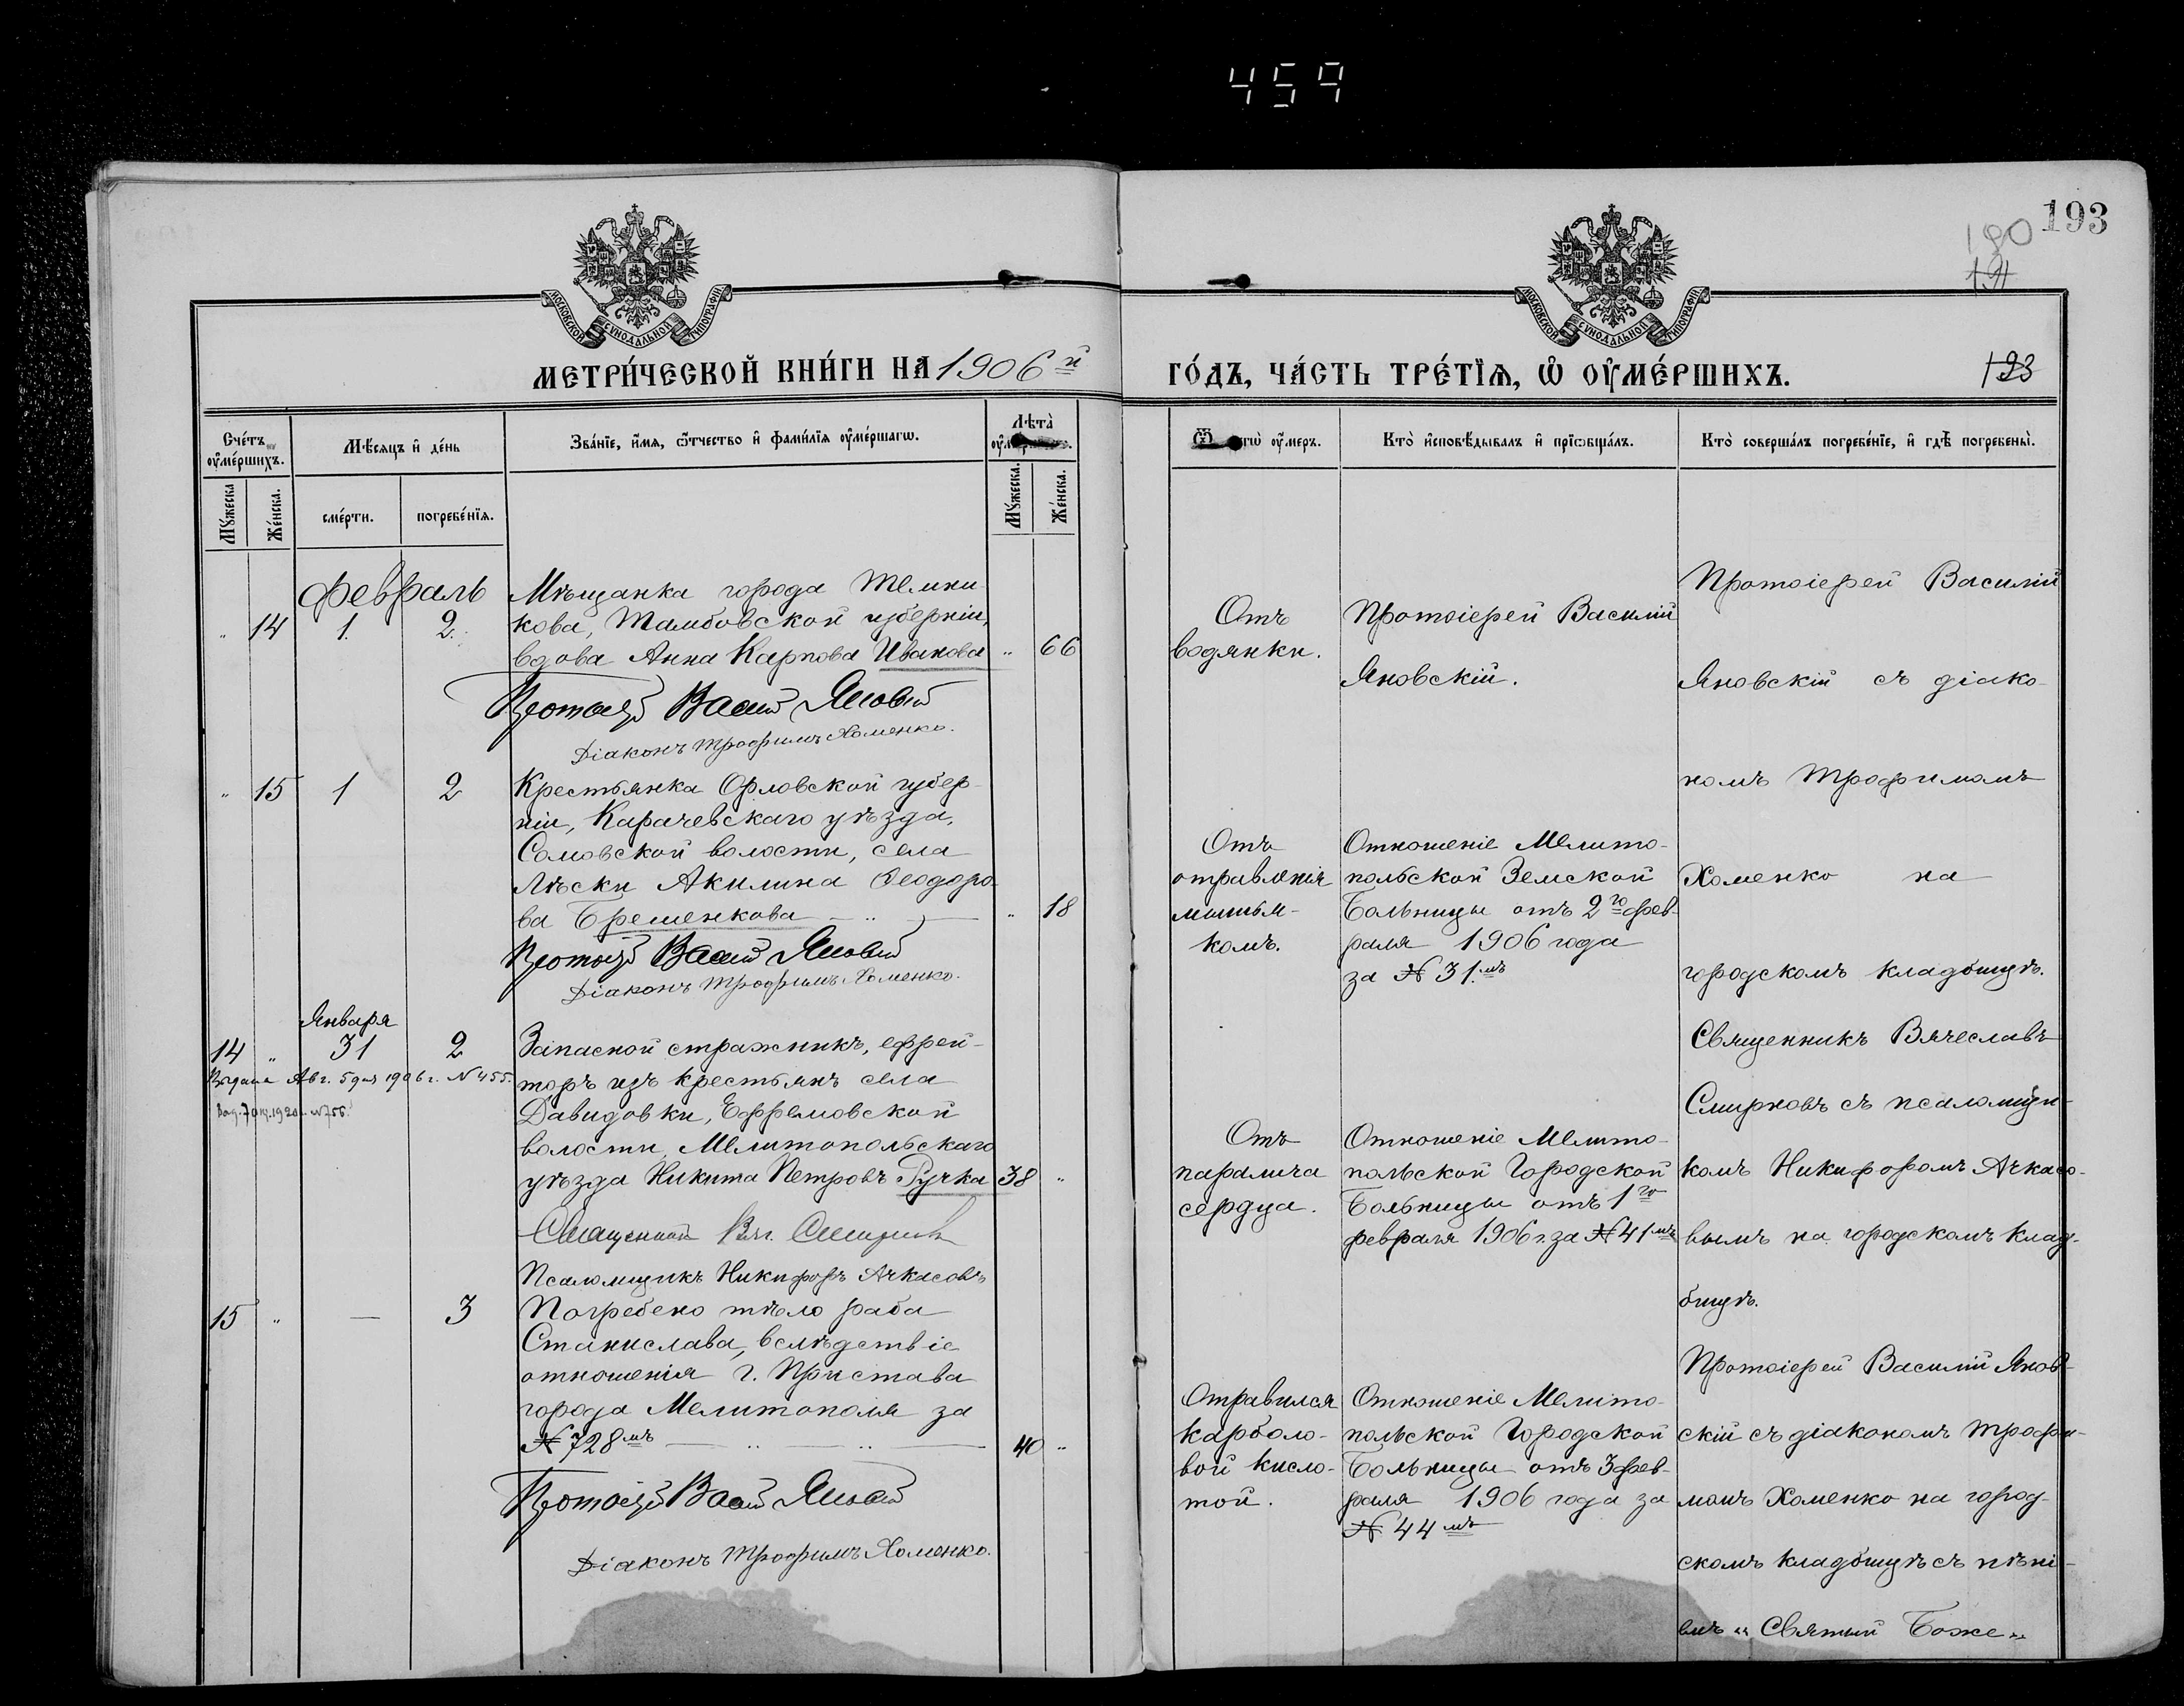 459
193
180
191
МОСКОВСКОЙ СѴНОДАЛЬНОЙ ТИПОГРАФІИ
МОСКОВСКОЙ СѴНОДАЛЬНОЙ ТИПОГРАФІИ
МЕТРИ́ЧЕСКОЙ КНИ́ГИ НА 1906й
ГО́ДЪ, ЧА́СТЬ ТРЕ́ТЇѦ, Ѡ҆ ОУ҆МЕ́РШИХЪ.
193
Сче́тъ оу҆ме́ршихъ.
Мѣ́сѧцъ и҆ де́нь
Зва́нїе, и҆́мѧ, ѻ҆́тчество и҆ фамилїѧ оу҆ме́ршагѡ.
Лѣ́та̀
Мꙋ́жеска
Же́нска.
сме́рти.
погребе́нїѧ.
Мꙋ́жеска.
Же́нска.
оу҆́меръ.
Кто̀ и҆сповѣ́дывалъ и҆ прїѡбща́лъ.
Кто̀ соверша́лъ погребе́нїе, и҆ гдѣ̀ погребены̀.
Февраль
" 14 1. 2.
Мѣщанка города Темни
кова, Тамбовской губерніи,
вдова Анна Карпова Иванова " 66
Протоіерей Василій Яновскій
Діаконъ Трофимъ Хоменко.
Отъ
водянки.
Протоіерей Василій
Яновскій.
Протоіерей Василій
Яновскій съ діако-
номъ Трофимомъ
Хоменко на
городскомъ кладбищѣ.
" 15 1 2
Крестьянка Орловской губер-
ніи, Карачевскаго уѣзда,
Сомовской волости, села
Лѣски Акилина Ѳеодоро-
ва Бременкова " 18
Протоіерей Василій Яновскій
Діаконъ Трофимъ Хоменко.
Отъ
отравленія
мышья-
комъ.
Отношеніе Мелито-
польской Земской
Больницы отъ 2го фев-
раля 1906 года
за № 31.мъ
Января
14 " 31 2
Выдана Авг. 5 дня 1906 г. № 455.
№ 756.
Запасной стражникъ, ефрей-
торъ изъ крестьянъ села
Давидовки, Ефремовской
волости, Мелитопольскаго
уѣзда Никита Петровъ Гучка 38 "
Священникъ Вяч. Смирновъ
Псаломщикъ Никифоръ Ачкасовъ
Отъ
паралича
сердца.
Отношеніе Мелито-
польской Городской
Больницы отъ 1го
февраля 1906 г. за № 41мъ
Священникъ Вячеславъ
Смирновъ съ псаломщи-
комъ Никифоромъ Ачкасо-
вымъ на городскомъ клад-
бищѣ.
15 " — 3
Погребено тѣло раба
Станислава, вслѣдствіе
отношенія г. Пристава
города Мелитополя за
№ 728мъ 40 "
Протоіерей Василій Яновскій
Діаконъ Трофимъ Хоменко.
Отравился
карболо-
вой кисло-
той.
Отношеніе Мелито-
польской Городской
Больницы отъ 3 фев-
раля 1906 года за
№ 44мъ
Протоіерей Василій Янов-
скій съ діакономъ Трофи-
момъ Хоменко на город-
скомъ кладбищѣ съ пѣні-
емъ „Святый Боже„